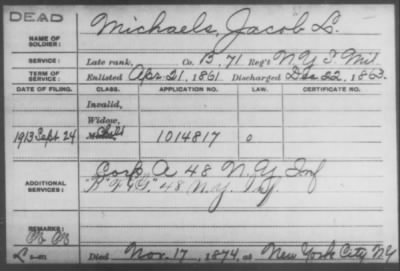 DEAD
NAME OF SOLDIER: Michaels, Jacob L.
SERVICE: Late rank, Co. B, 71 Reg't N.Y.S. Mil.
TERM OF SERVICE: Enlisted Apr. 21, 1861. Discharged Dec 22, 1863.
DATE OF FILING. CLASS. APPLICATION NO. LAW. CERTIFICATE NO.
Invalid,
Widow,
1913 Sept 24 Child 1014817
ADDITIONAL SERVICES: Corp. A 48 N.Y. Inf
48 N.Y.
REMARKS:
Died Nov. 17, 1874, at New York City N.Y.